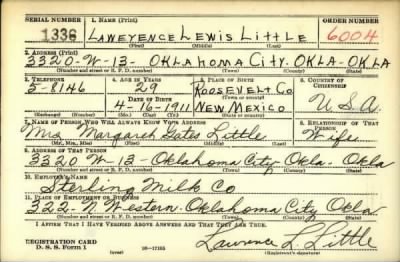 SERIAL NUMBER 1. NAME (Print) ORDER NUMBER
1336 LAWEYENCE LEWIS LITTLE 6004
(First) (Middle) (Last)
2. ADDRESS (Print)
3320-W-13- OKLAHOMA CITY. OKLA-OKLA
(Number and street or R. F. D. number) (Town) (County) (State)
3. TELEPHONE 4. AGE IN YEARS 5. PLACE OF BIRTH 6. COUNTRY OF CITIZENSHIP
5-8146 29 ROOSEVELT CO
DATE OF BIRTH (Town or county)
4-16-1911 NEW MEXICO U.S.A.
(Exchange) (Number) (Mo.) (Day) (Yr.) (State or country)
7. NAME OF PERSON WHO WILL ALWAYS KNOW YOUR ADDRESS 8. RELATIONSHIP OF THAT PERSON
Mrs Margaret Gates Little Wife
(Mr., Mrs., Miss) (First) (Middle) (Last)
9. ADDRESS OF THAT PERSON
3320 W-13-Oklahoma City Okla. Okla
(Number and street or R. F. D. number) (Town) (County) (State)
10. EMPLOYER'S NAME
Sterling Milk Co
11. PLACE OF EMPLOYMENT OR BUSINESS
322-N Western. Oklahoma City Okla
(Number and street or R. F. D. number) (Town) (County) (State)
I AFFIRM THAT I HAVE VERIFIED ABOVE ANSWERS AND THAT THEY ARE TRUE.
REGISTRATION CARD
D. S. S. Form 1 (over) 16-17105 Lawrence L. Little
(Registrant's signature)